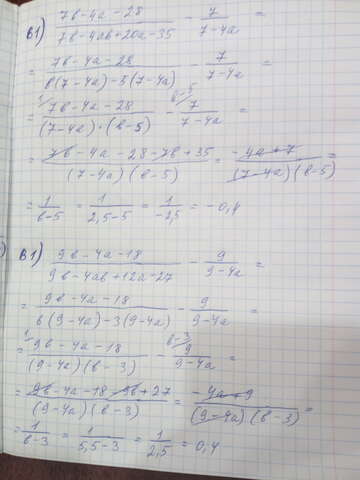 В1) (7в-4а-28)/(7в-4ав+20а-35) - 7/(7-4а) =
= (7в-4а-28)/(в(7-4а)-5(7-4а)) - 7/(7-4а) =
= ¹⁄(7в-4а-28)/((7-4а)·(в-5)) - ᵇ⁻⁵⁄⁄7/(7-4а) =
= (7в-4а-28-7в+35)/((7-4а)(в-5)) = (-4а+7)/((7-4а)(в-5)) =
= 1/(в-5) = 1/(2,5-5) = 1/(-2,5) = -0,4
В1) (9в-4а-18)/(9в-4ав+12а-27) - 9/(9-4а) =
= (9в-4а-18)/(в(9-4а)-3(9-4а)) - 9/(9-4а) =
= ¹⁄(9в-4а-18)/((9-4а)(в-3)) - ᵇ⁻³⁄⁄9/(9-4а) =
= (9в-4а-18-9в+27)/((9-4а)(в-3)) = (-4а+9)/((9-4а)(в-3)) =
= 1/(в-3) = 1/(5,5-3) = 1/2,5 = 0,4